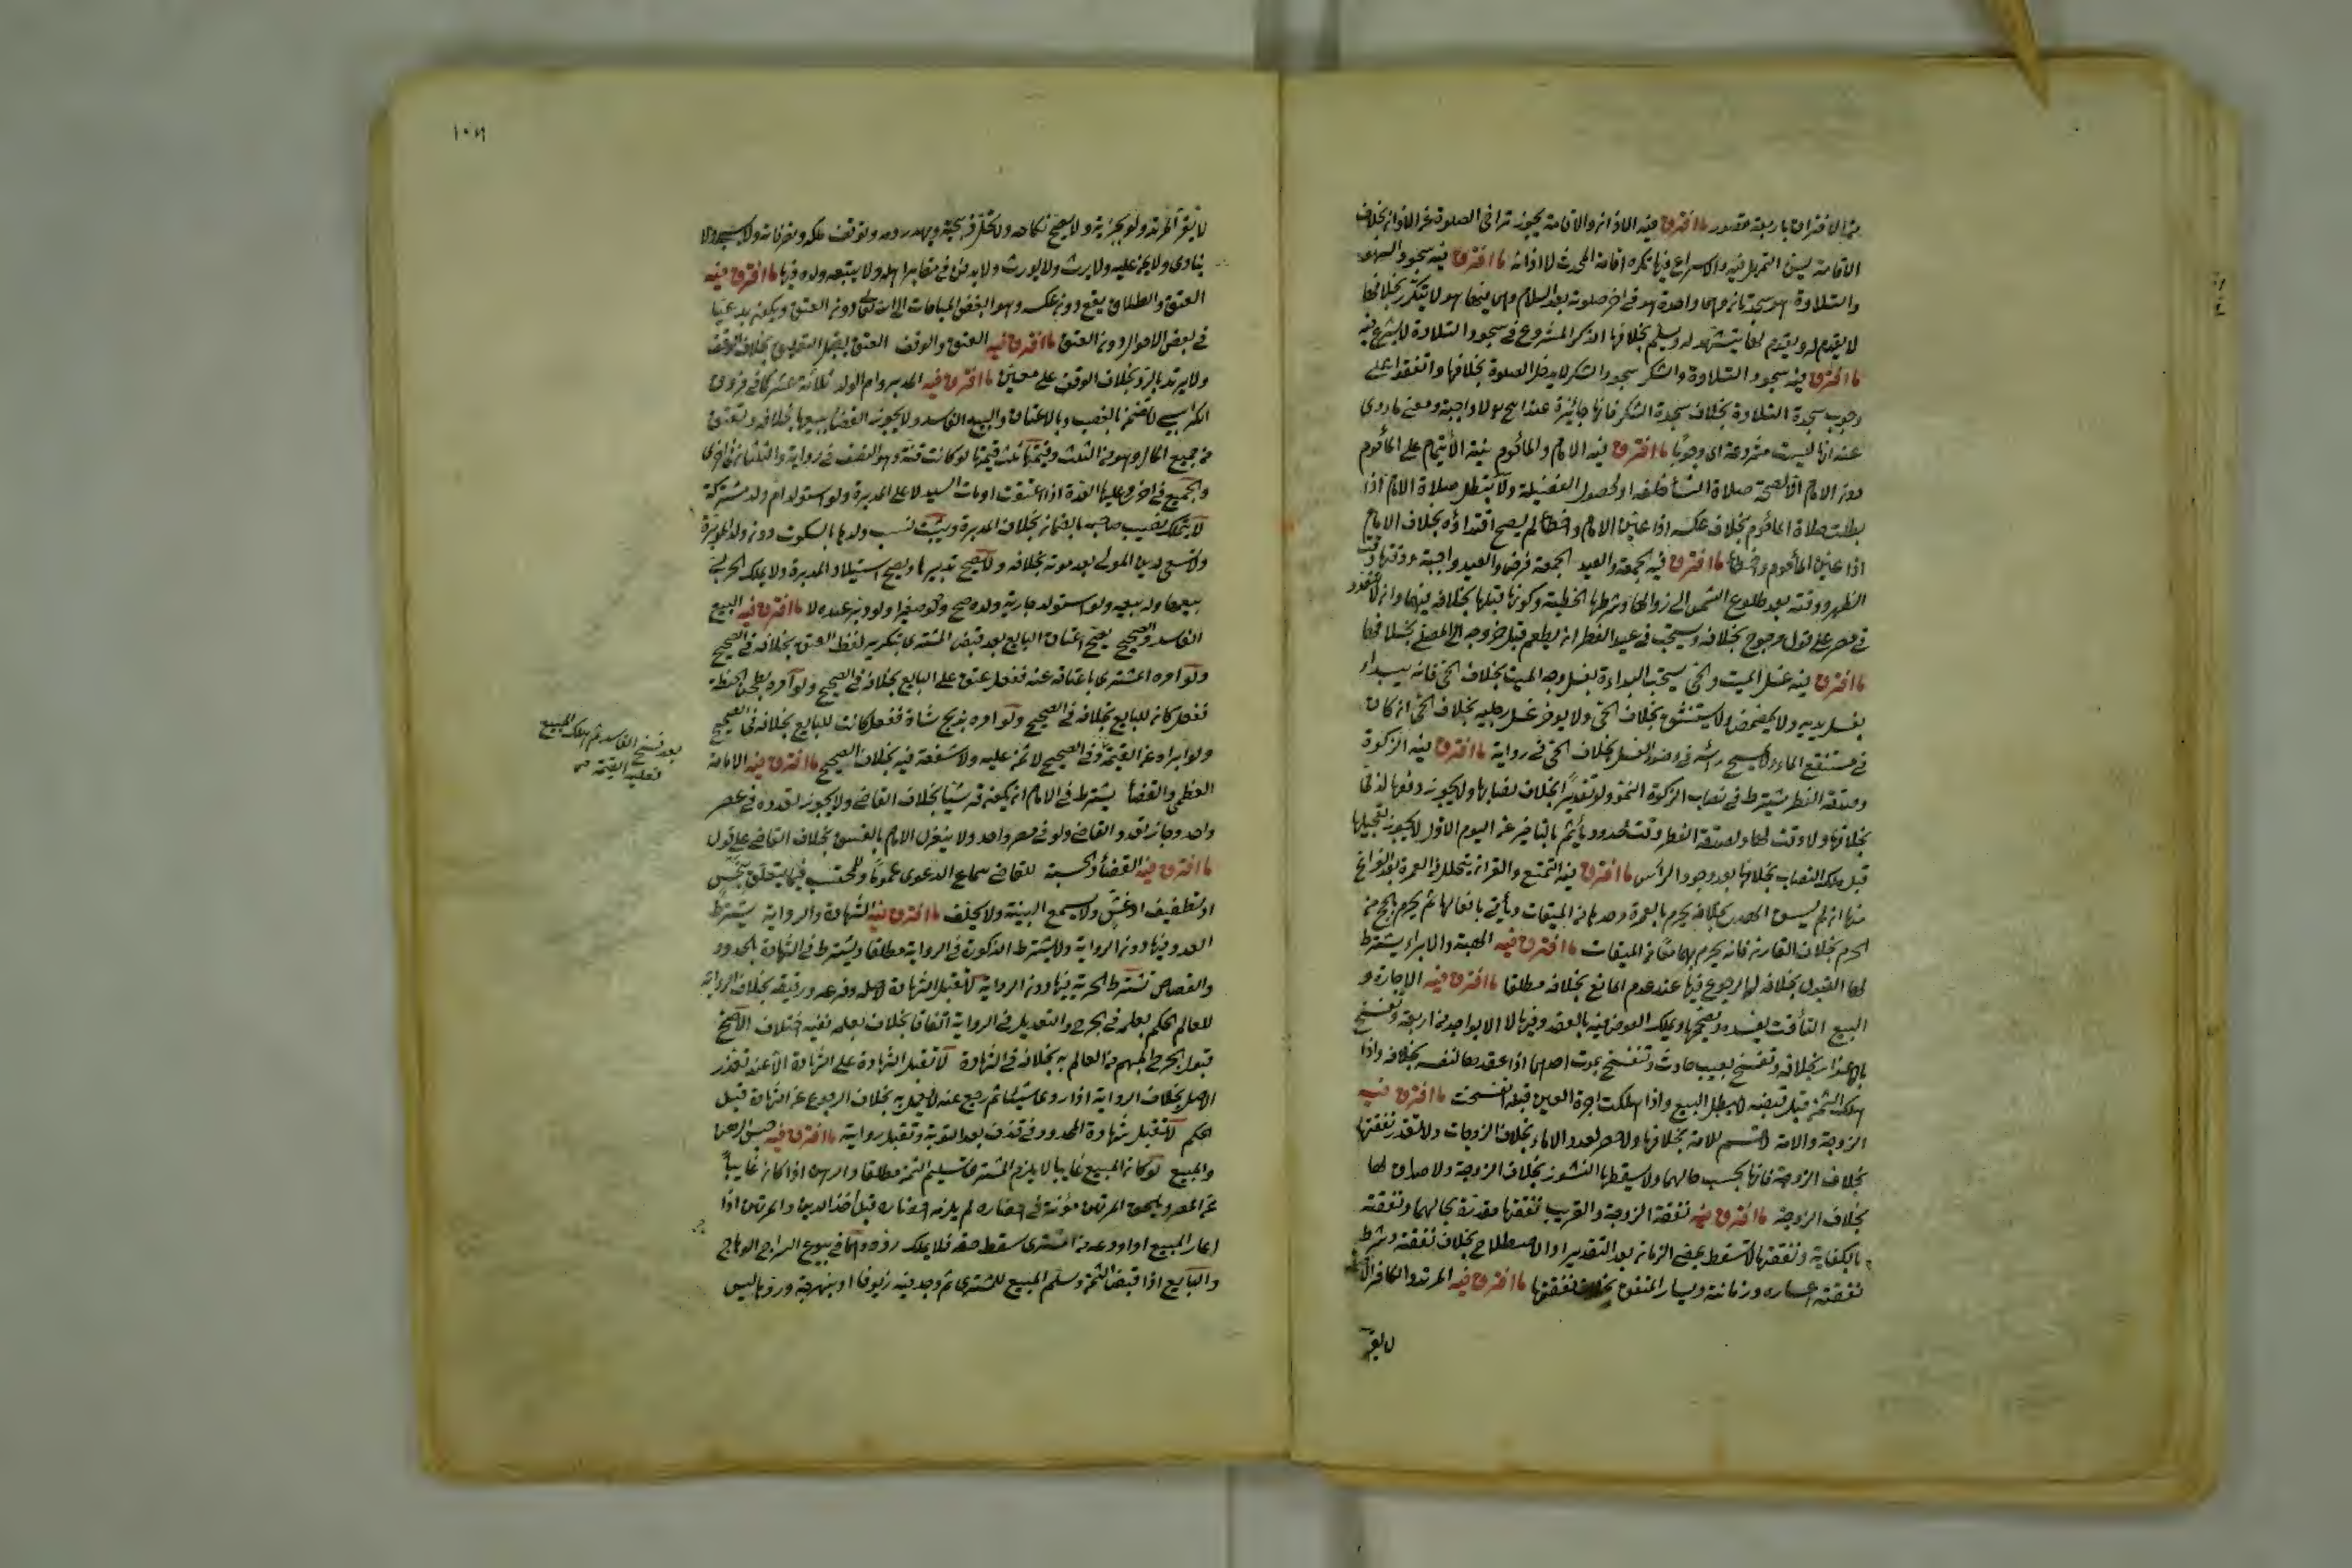 من الافتراق باربعة قصور ما افترق فيه الاذان والاقامة يجوز تراخي الصلوة عن الاذان بخلاف
الاقامة يسن التمهل فيه والاسراع فيها يكره اقامة المحدث لا اذانه ما افترق فيه سجود السهو
والتلاوة هو سجدتان وهي واحدة هو في اخر صلوته بعد السلام وهي فيها هو لا يتكرر بخلافها
لا يقوم له ويقوم لها يتشهد له ويسلم بخلافها الذكر المشروع في سجود التلاوة لا يشرع فيه
ما افترق فيه سجود التلاوة والشكر سجود الشكر لا يدخل الصلوة بخلافها واتفقوا على
وجوب سجدة التلاوة بخلاف سجدة الشكر فانها جائزة عند ابي ح لا واجبة ومعنى ما روى
عنه انها ليست مشروعة اى وجوبا ما افترق فيه الامام والمأموم نية الأيتمام على المأموم
دون الامام الا لصحة صلاة النسأ خلفه او لحصول الفضيلة ولا تبطل صلاة الامام اذا
بطلت صلاة المأموم بخلاف عكسه اذا عين الامام واخطأ لم يصح اقتداؤه بخلاف الامام
اذا عين المأموم واخطأ ما افترق فيه الجمعة والعيد الجمعة فرض والعيد واجبة ووقتها وقت
الظهر ووقته بعد طلوع الشمس الى زوالها وشرطها الخطبة وكونها قبلها بخلافه فيهما وان لا تتعدد
في مصر على قول مرجوح بخلافه ويستحب في عيد الفطر ان يطعم قبل خروجه الى المصلى بخلافها
ما افترق فيه غسل الميت والحي يستحب البداءة بغسل وجه الميت بخلاف الحي فانه يبداء
بغسل يديه ولا يمضمض ولا يستنشق بخلاف الحي ولا يوخر غسل رجليه بخلاف الحي ان كان
في مستنقع الماء ولا يمسح رأسه في وضوء الغسل بخلاف الحي في رواية ما افترق فيه الزكوة
وصدقة الفطر يشترط في نصاب الزكوة النمو ولو تقديرا بخلاف نصابها ولا يجوز دفعها لذمي
بخلافها ولا وقت لها ولصدقة الفطر وقت محدود يأثم بالتأخير عن اليوم الاول لا يجوز تعجيلها
قبل ملك النصاب بخلافها بعد وجود الرأس ما افترق فيه التمتع والقران يتحلل في العمرة بعد الفراغ
منها ان لم يسق الهدي بخلافه يحرم بالعمرة وحدها من الميقات ويأتي بافعالها ثم يحرم بالحج من
الحرم بخلاف القارن فانه يحرم بهما معا من الميقات ما افترق فيه الهبة والابراء يشترط
لها القبول بخلافه لها الرجوع فيها عند عدم المانع بخلافه مطلقا ما افترق فيه الاجارة و
البيع التأقيت يفسده ويصححها ويملك العوض فيه بالعقد وفيها لا الا بواحد من اربعة وتفسخ
بالاعذار بخلافه وتفسخ بعيب حادث وتنفسخ بموت احدهما اذا عقدها لنفسه بخلافه واذا
هلك الثمن قبل قبضه لا يبطل البيع واذا هلكت اجرة العين قبله انفسخت ما افترق فيه
الزوجة والامة لا قسم للامة بخلافها ولا حصر لعدد الاماء بخلاف الزوجات ولا تتقدر نفقتها
بخلاف الزوجة فانها بحسب حالهما ولا يسقطها النشوز بخلاف الزوجة ولا صداق لها
بخلاف الزوجة ما افترق فيه نفقة الزوجة والقريب نفقتها مقدرة بحالهما ونفقته
بالكفاية ونفقتها لا تسقط بمضي الزمان بعد التقدير او الاصطلاح بخلاف نفقته وشرط
نفقته اعساره وزمانته ويسار المنفق بخلاف نفقتها ما افترق فيه المرتد والكافر الأصلي
لا يقر
١٠٦
لا يقر المرتد ولو بجزية ولا يصح نكاحه ولا تحل ذبيحته ويهدر دمه ويوقف ملكه وتصرفاته ولا يسبى ولا
يفادى ولا يمن عليه ولا يرث ولا يورث ولا يدفن في مقابر اهل ولا يتبعه ولده فيها ما افترق فيه
العتق والطلاق يقع دون عكسه وهو ابغض المباحات الى الله تعالى دون العتق ويكون بدعيا
في بعض الاحوال دون العتق ما افترق فيه العتق والوقف العتق يقبل التعليق بخلاف الوقف
ولا يرتد بالرد بخلاف الوقف على معين ما افترق فيه المدبر وام الولد ثلاثة عشر كما في فروق
الكرابيسي لا تضمن بالغصب وبالاعتاق والبيع الفاسد ولا يجوز القضأ ببيعها بخلافه وتعتق
من جميع المال وهو من الثلث وقيمتها ثلث قيمتها لو كانت قنة وهو النصف في رواية والثلثان في اخرى
والجميع في اخرى وعليها العدة اذا اعتقت او مات السيد لا على المدبرة ولو استولد ام ولد مشتركة
لا يتملك نصيب صاحبه بالضمان بخلاف المدبرة ويثبت نسب ولدها بالسكوت دون ولد المدبرة
ولا تسعى لدين المولى بعد موته بخلافه ولا يصح تدبيرها ويصح استيلاد المدبرة ولا يملك الحربي
بيعها وله بيعه ولو استولد جارية ولده صح ولو صغيرا ولو دبر عبده لا ما افترق فيه البيع
الفاسد والصحيح يصح اعتاق البايع بعد قبض المشترى بتكرير لفظ العتق بخلافه في الصحيح
ولو امره المشترى باعتاقه عنه ففعل عتق على البايع بخلافه في الصحيح ولو امره بطحن الحنطة
ففعل كان للبايع بخلافه في الصحيح ولو امره بذبح شاة ففعل كانت للبايع بخلافه في الصحيح
ولو ابراه عن القيمة وفي الصحيح لا ثمن عليه ولا شفعة فيه بخلاف الصحيح ما افترق فيه الامامة
العظمى والقضأ يشترط في الامام ان يكون قرشيا بخلاف القاضي ولا يجوز تعدده في عصر
واحد وجاز تعدد القاضي ولو في مصر واحد ولا ينعزل الامام بالفسق بخلاف القاضي على قول
ما افترق فيه القضأ والحسبة للقاضي سماع الدعوى عموما وللمحتسب فيما يتعلق ببخس
او تطفيف او غش ولا يسمع البينة ولا يحلف ما افترق فيه الشهادة والرواية يشترط
العدد فيها دون الرواية ولا يشترط الذكورة في الرواية مطلقا ويشترط في الشهادة بالحدود
والقصاص تشترط الحرية فيها دون الرواية لا تقبل الشهادة لاصله وفرعه ورقيقه بخلاف الرواية
للعالم الحكم بعلمه في الجرح والتعديل في الرواية اتفاقا بخلاف بعلمه ففيه اختلاف الاصح
قبول الجرح المبهم من العالم به بخلافه في الشهادة لا تقبل الشهادة على الشهادة الا عند تعذر
الاصل بخلاف الرواية اذا روى شيئا ثم رجع عنه لا يعمل به بخلاف الرجوع عن الشهادة قبل
الحكم لا تقبل شهادة المحدود في قذف بعد التوبة وتقبل رواية ما افترق فيه حبس الرهن
والمبيع لو كان المبيع غايبا لا يلزم المشترى تسليم الثمن مطلقا والرهن اذا كان غايبا
عن المصر ويلحق المرتهن مؤنة في احضاره لم يلزمه احضاره قبل اخذ الدين والمرتهن اذا
اعار المبيع او اودعه من المشترى سقط حقه فلا يملك رده وانما في بيوع السراج الوهاج
والبايع اذا قبض الثمن وسلم المبيع للمشترى ثم وجد فيه زيوفا او بنهرجة وردها ليس
بعد فسخ الفاسد ثم هلك المبيع
فعليه القيمة صح